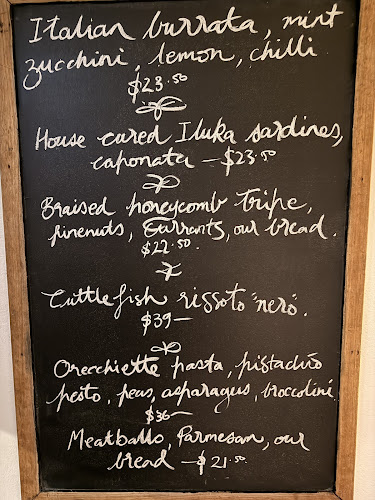 Italian burrata, mint
zucchini, lemon, chilli
$23.50
House cured Iluka sardines,
caponata — $23.50
Braised honeycomb tripe,
pinenuts, Currants, our bread.
$22.50.
Cuttlefish rissoto "nero".
$39—
Orecchiette pasta, pistachio
pesto, peas, asparagus, broccolini
$36—
Meatballs, Parmesan, our
bread — $21.50.